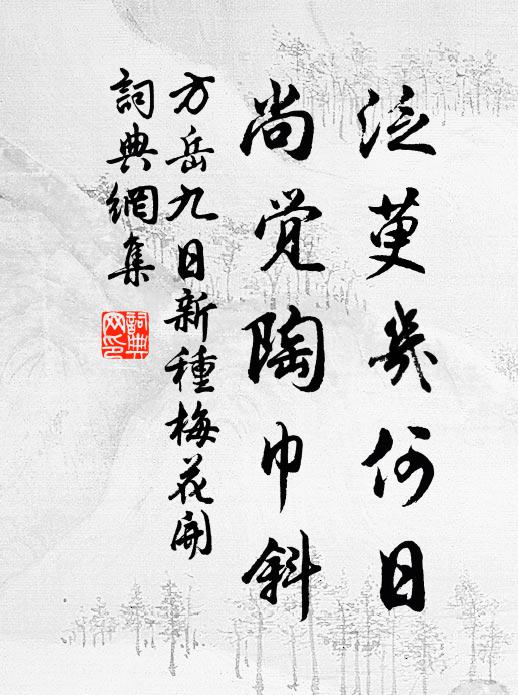 泛萸幾何日
尚觉陶巾斜
方岳九日新種梅花開
詞典網集
詞典网印